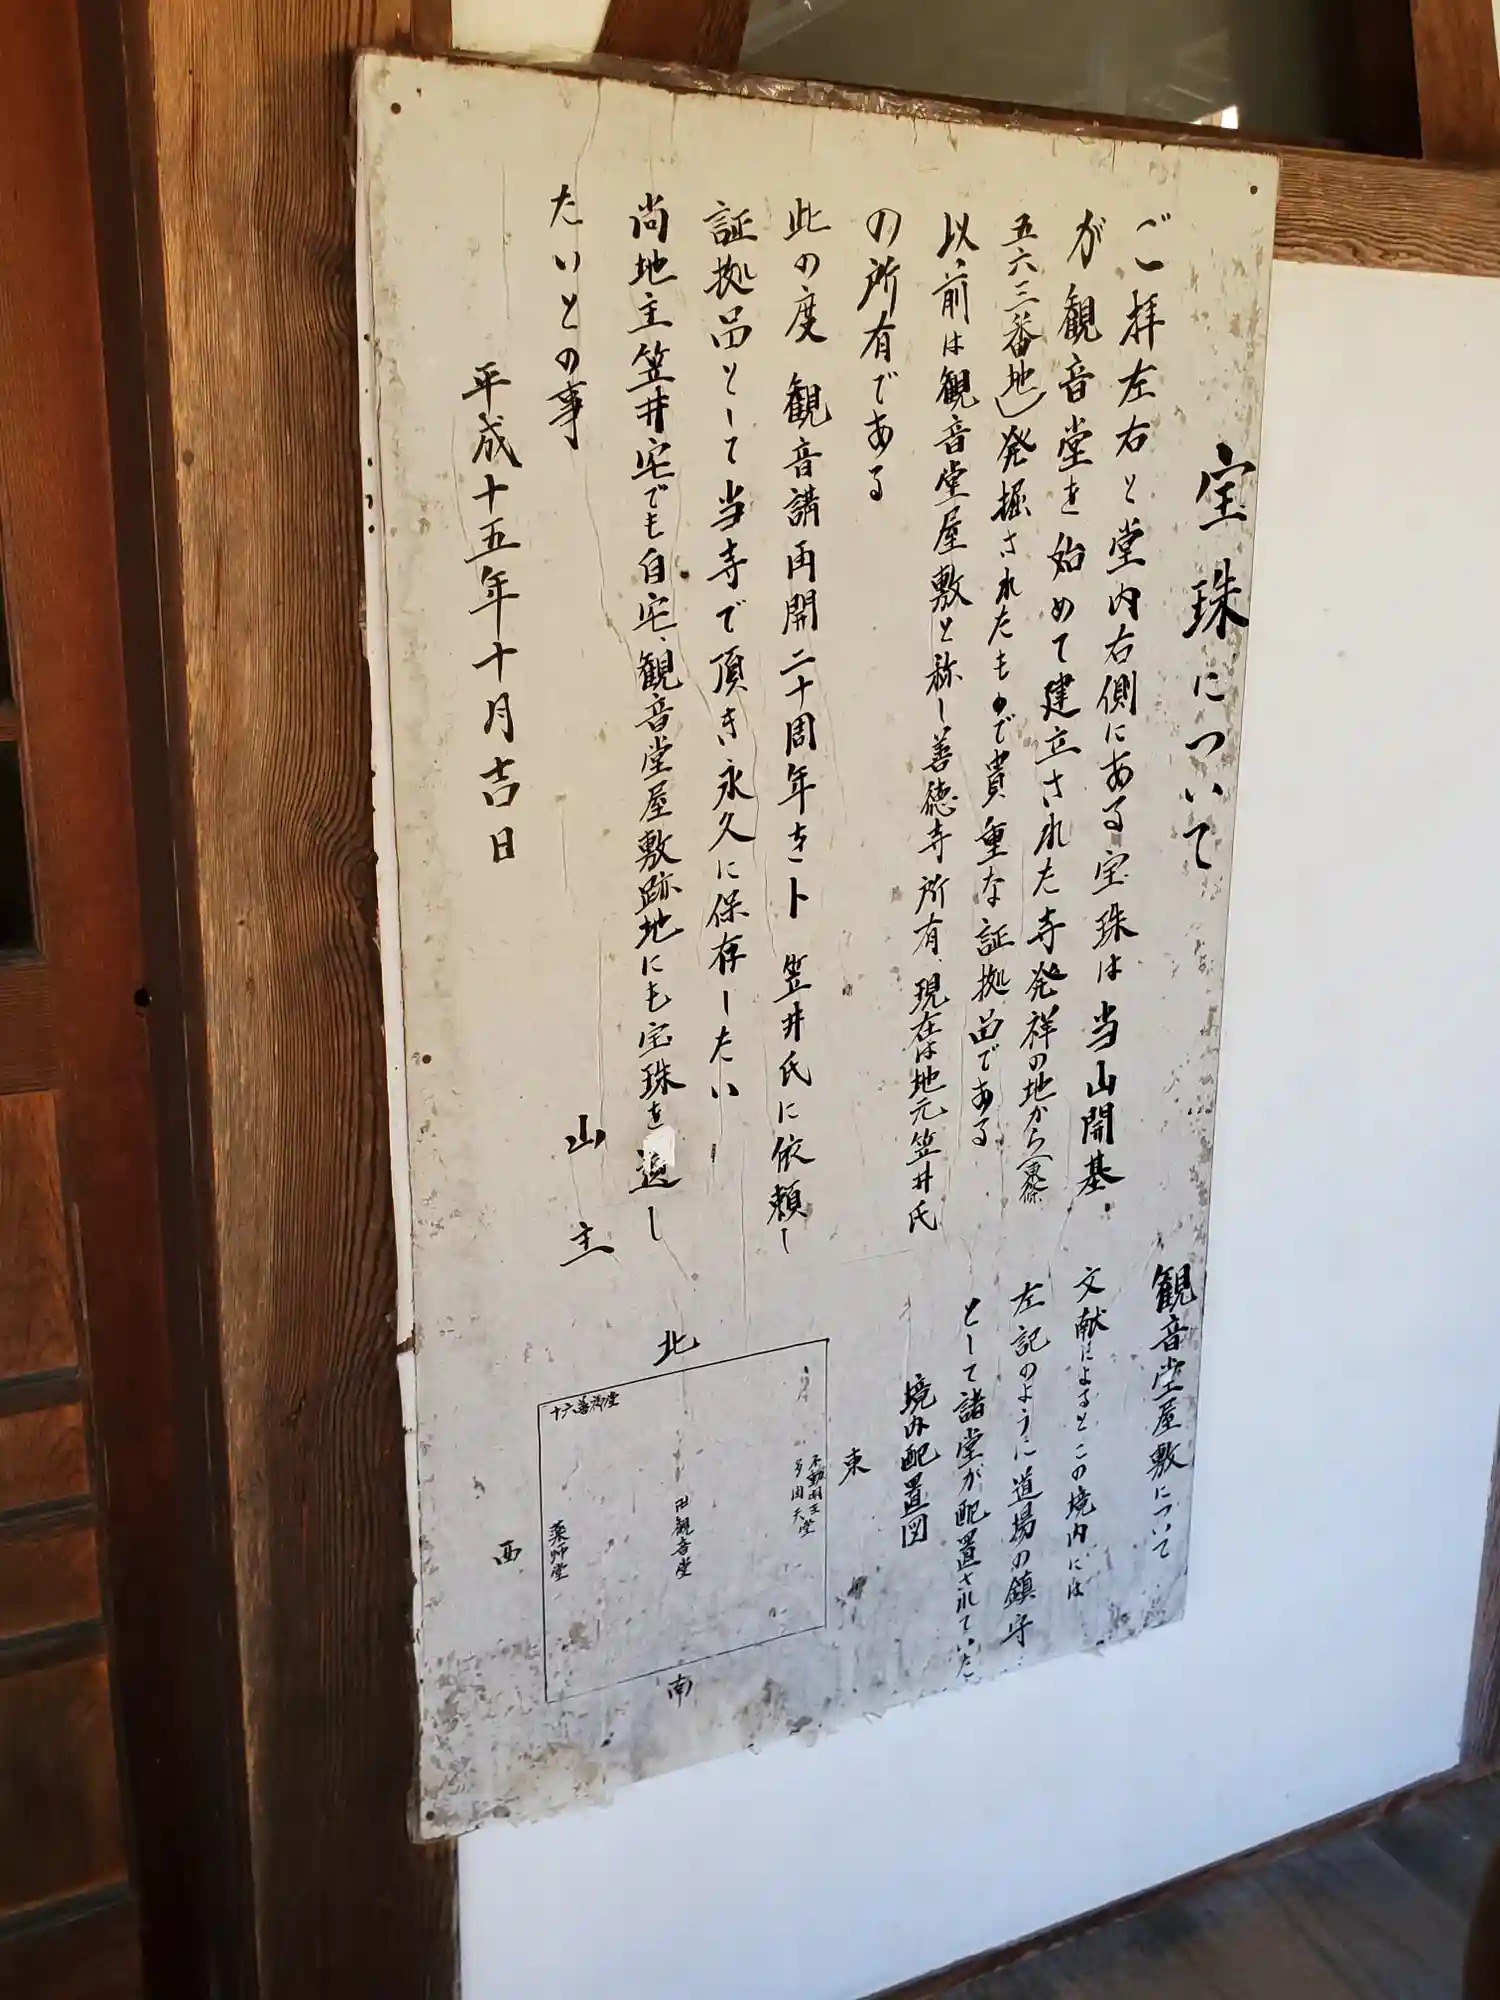 宝珠について
ご拝左右と堂内右側にある宝珠は当山開基
が観音堂を始めて建立された寺発祥の地から(
五六三番地)発掘されたもので貴重な証拠品である
以前は観音堂屋敷と称し善徳寺所有、現在は地元笠井氏
の所有である
此の度 観音講再開二十周年をト 笠井氏に依頼し
証拠品として当寺で頂き永久に保存したい
尚地主笠井宅でも自宅、観音堂屋敷跡地にも宝珠を返し
たいとの事
平成十五年十月吉日
山主
観音堂屋敷について
文献によるとこの境内には
左記のように道場の鎮守
として諸堂が配置されていた
境内配置図
北
東
不動明王堂
多聞天
卍観音堂
十六善神堂
薬師堂
西
南